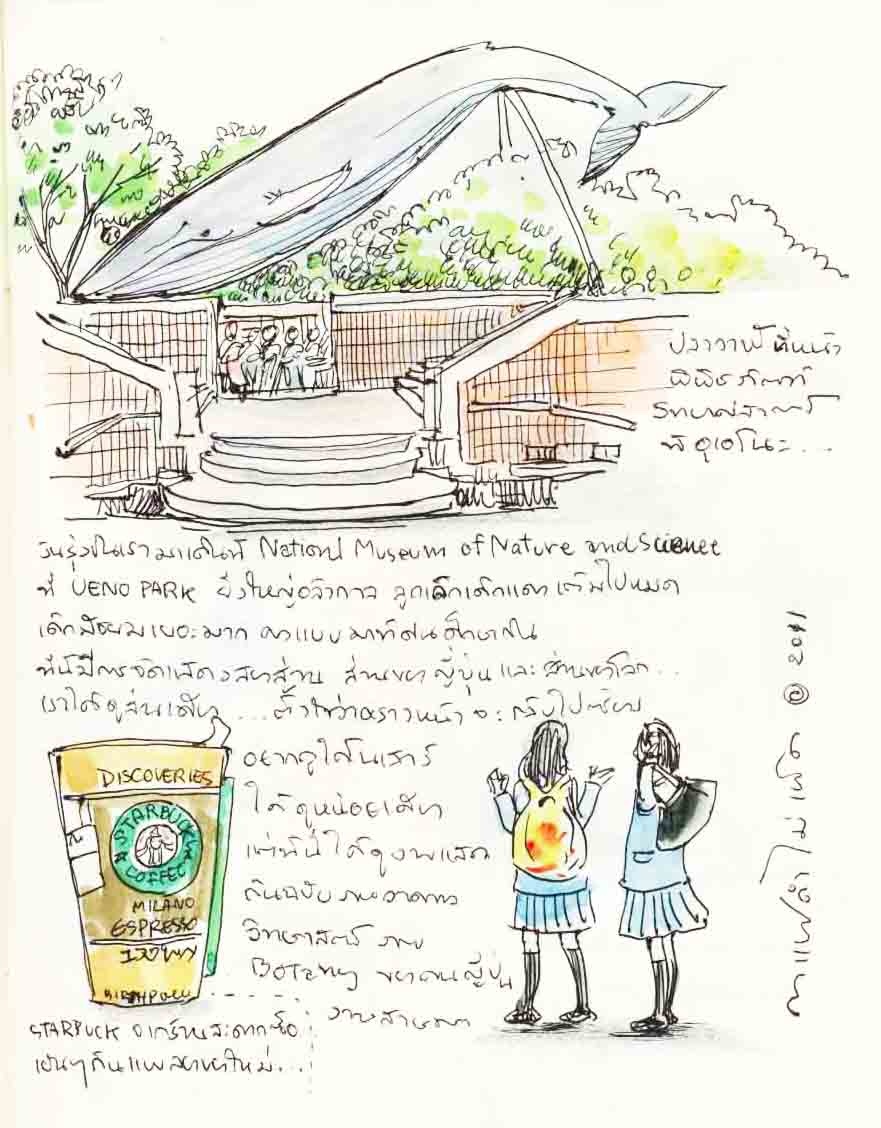 ปลาวาฬที่หน้า
พิพิธภัณฑ์
วิทยาศาสตร์
ที่อุเอโนะ...
วันรุ่งขึ้นเรามาเดินที่ National Museum of Nature and Science
ที่ UENO PARK ยิ่งใหญ่อลังการ ลูกเล็กเด็กแดงเต็มไปหมด
เด็กมัธยมเยอะมาก มาทัศนศึกษากัน
ที่นี่มีการจัดแสดงสองส่วน ส่วนของญี่ปุ่น และส่วนของโลก...
เราได้ดูส่วนเดียว ...ตั้งใจว่าคราวหน้าจะกลับไปซ้ำ
อยากดูไดโนเสาร์
ได้ดูหน่อยเดียว
แต่ที่นี่ได้ดูงานแสดง
ต้นฉบับภาพวาดทาง
วิทยาศาสตร์ ภาพ
Botany ของคนญี่ปุ่น
งานสวยมาก
DISCOVERIES
STARBUCKS
COFFEE
MILANO
ESPRESSO
120 เยน
STARBUCK จากร้านสะดวกซื้อ
เย็นๆ
กาแฟดำไม่เผ็ด © 2011